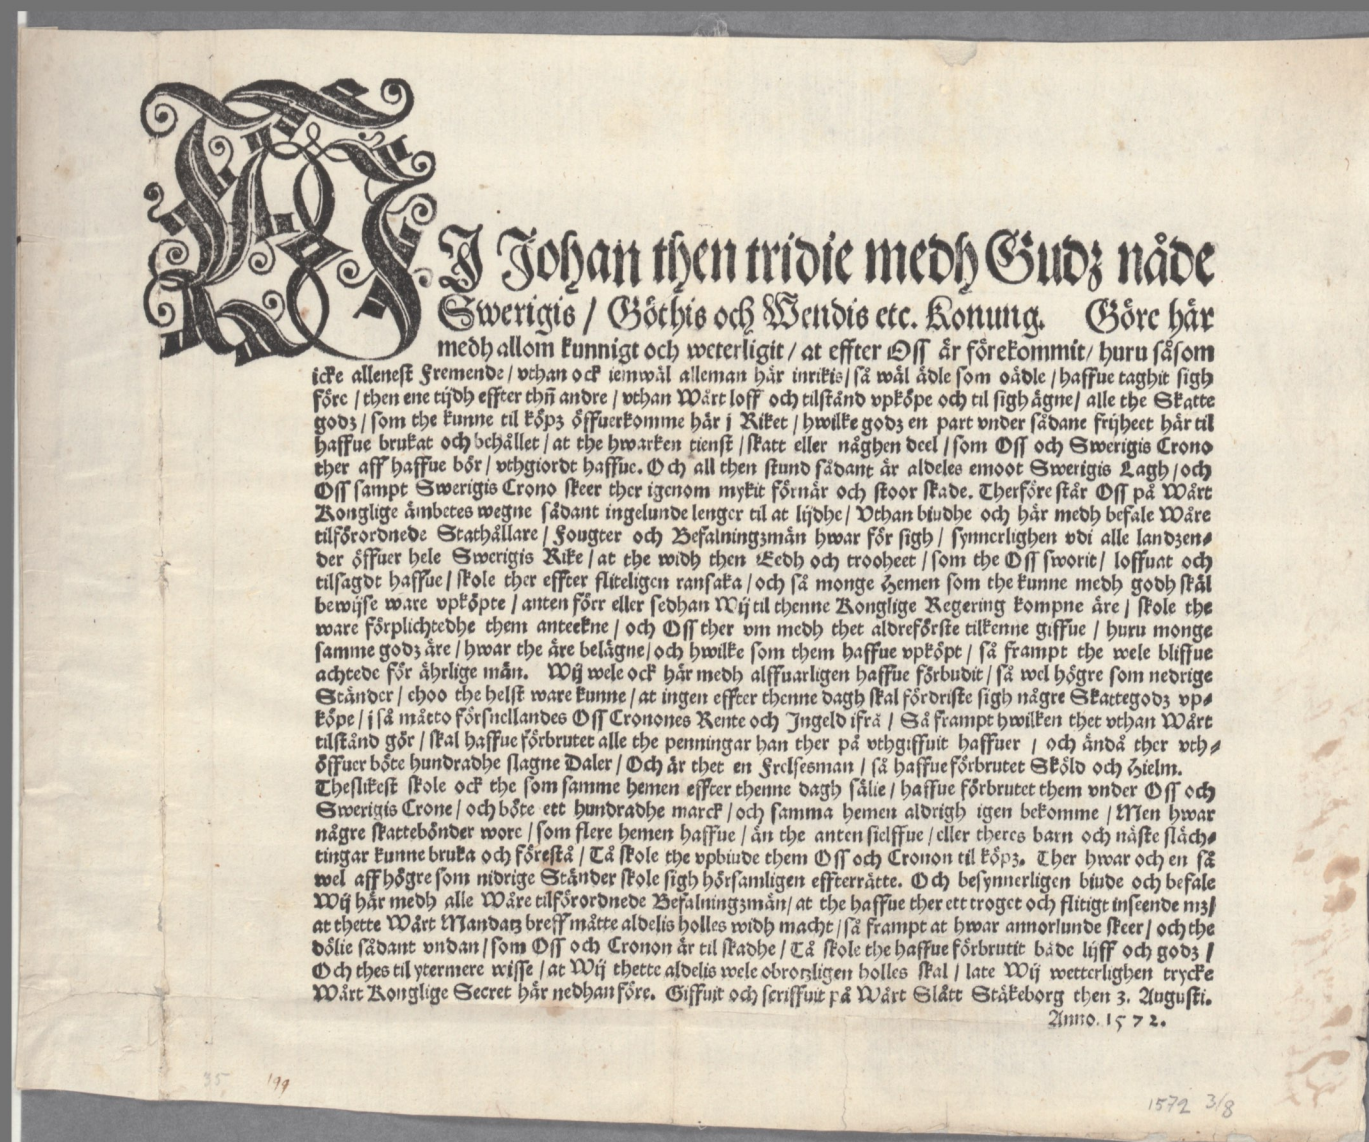 WJ Johan then tridie medh Gudz nåde
Swerigis / Göthis och Wendis etc. Konung. Göre här
medh allom kunnigt och weterligit / at effter Oss är förekommit / huru såsom
icke allenest Fremende / vthan ock iemwäl alleman här inrikis / så wäl ädle som oädle / haffue taghit sigh
före / then ene tijdh effter thñ andre / vthan Wårt loff och tilstånd vpköpe och til sigh ägne / alle the Skatte
godz / som the kunne til köpz öffuerkomme här j Riket / hwilke godz en part vnder sådane frijheet här til
haffue brukat och behållet / at the hwarken tienst / skatt eller någhen deel / som Oss och Swerigis Crono
ther aff haffue bör / vthgiordt haffue. Och all then stund sådant är aldeles emoot Swerigis Lagh / och
Oss sampt Swerigis Crono skeer ther igenom mykit förnär och stoor skade. Therföre står Oss på Wårt
Konglige ämbetes wegne sådant ingelunde lenger til at lijdhe / Vthan biudhe och här medh befale Wåre
tilförordnede Stathållare / Fougter och Befalningzmän hwar för sigh / synnerlighen vdi alle landzen-
der öffuer hele Swerigis Rike / at the widh then Eedh och trooheet / som the Oss sworit / loffuat och
tilsagdt haffue / skole ther effter fliteligen ransaka / och så monge Hemen som the kunne medh godh skäl
bewijse ware vpköpte / anten förr eller sedhan Wij til thenne Konglige Regering kompne äre / skole the
ware förplichtedhe them anteekne / och Oss ther vm medh thet aldreförste tilkenne giffue / huru monge
samme godz äre / hwar the äre belägne / och hwilke som them haffue vpköpt / så frampt the wele bliffue
achtede för ährlige män. Wij wele ock här medh alffuarligen haffue förbudit / så wel högre som nedrige
Ständer / ehoo the helst ware kunne / at ingen effter thenne dagh skal fördriste sigh någre Skattegodz vp-
köpe / j så måtto försnellandes Oss Cronones Rente och Ingeld ifrå / Så frampt hwilken thet vthan Wårt
tilstånd gör / skal haffue förbrutet alle the penningar han ther på vthgiffuit haffuer / och ändå ther vth-
öffuer böte hundradhe slagne Daler / Och är thet en Frelsesman / så haffue förbrutet Sköld och Hielm.
Theslikest skole ock the som samme hemen effter thenne dagh sälie / haffue förbrutet them vnder Oss och
Swerigis Crone / och böte ett hundradhe marck / och samma hemen aldrigh igen bekomme / Men hwar
någre skattebönder wore / som flere hemen haffue / än the anten sielffue / eller theres barn och näste släch-
tingar kunne bruka och förestå / Tå skole the vpbiude them Oss och Cronon til köpz. Ther hwar och en så
wel aff högre som nidrige Ständer skole sigh hörsamligen effterrätte. Och besynnerligen biude och befale
Wij här medh alle Wåre tilförordnede Befalningzmän / at the haffue ther ett troget och flitigt inseende mz /
at thette Wårt Mandatz breff måtte aldelis holles widh macht / så frampt at hwar annorlunde skeer / och the
dölie sådant vndan / som Oss och Cronon är til skadhe / Tå skole the haffue förbrutit både lijff och godz /
Och thes til ytermere wisse / at Wij thette aldelis wele obrotzligen holles skal / late Wij wetterlighen trycke
Wårt Konglige Secret här nedhan före. Giffuit och scriffuit på Wårt Slått Stäkeborg then 3. Augusti.
Anno. 1572.
35 199
1572 3/8